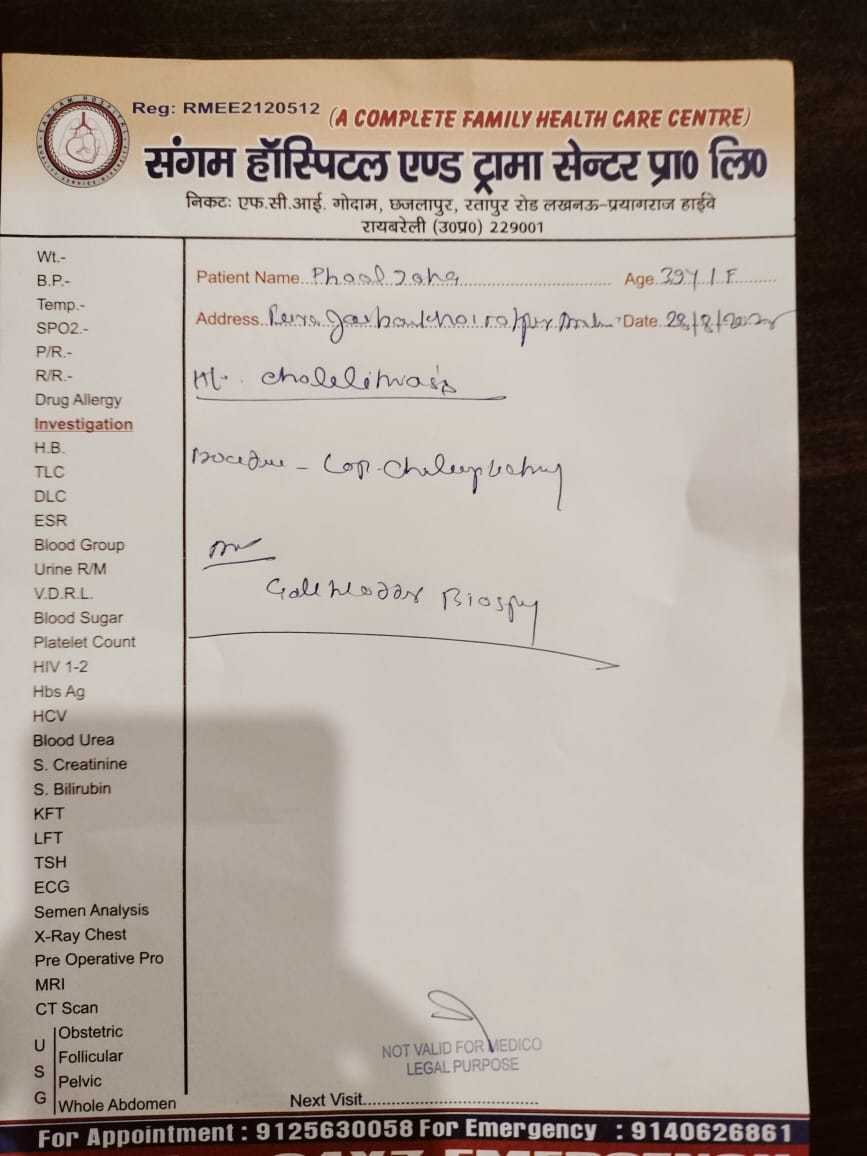 Reg: RMEE2120512 (A COMPLETE FAMILY HEALTH CARE CENTRE)
संगम हॉस्पिटल एण्ड ट्रामा सेन्टर प्रा० लि०
निकटः एफ.सी.आई. गोदाम, छजलापुर, रतापुर रोड लखनऊ-प्रयागराज हाईवे
रायबरेली (उ०प्र०) 229001
Wt.-
B.P.-
Temp.-
SPO2.-
P/R.-
R/R.-
Drug Allergy
Investigation
H.B.
TLC
DLC
ESR
Blood Group
Urine R/M
V.D.R.L.
Blood Sugar
Platelet Count
HIV 1-2
Hbs Ag
HCV
Blood Urea
S. Creatinine
S. Bilirubin
KFT
LFT
TSH
ECG
Semen Analysis
X-Ray Chest
Pre Operative Pro
MRI
CT Scan
U S G
Obstetric
Follicular
Pelvic
Whole Abdomen
Patient Name.. Phool Age. 39Y / F
Address.. Date. 28/8/
Biospy
NOT VALID FOR MEDICO
LEGAL PURPOSE
Next Visit
For Appointment : 9125630058 For Emergency : 9140626861